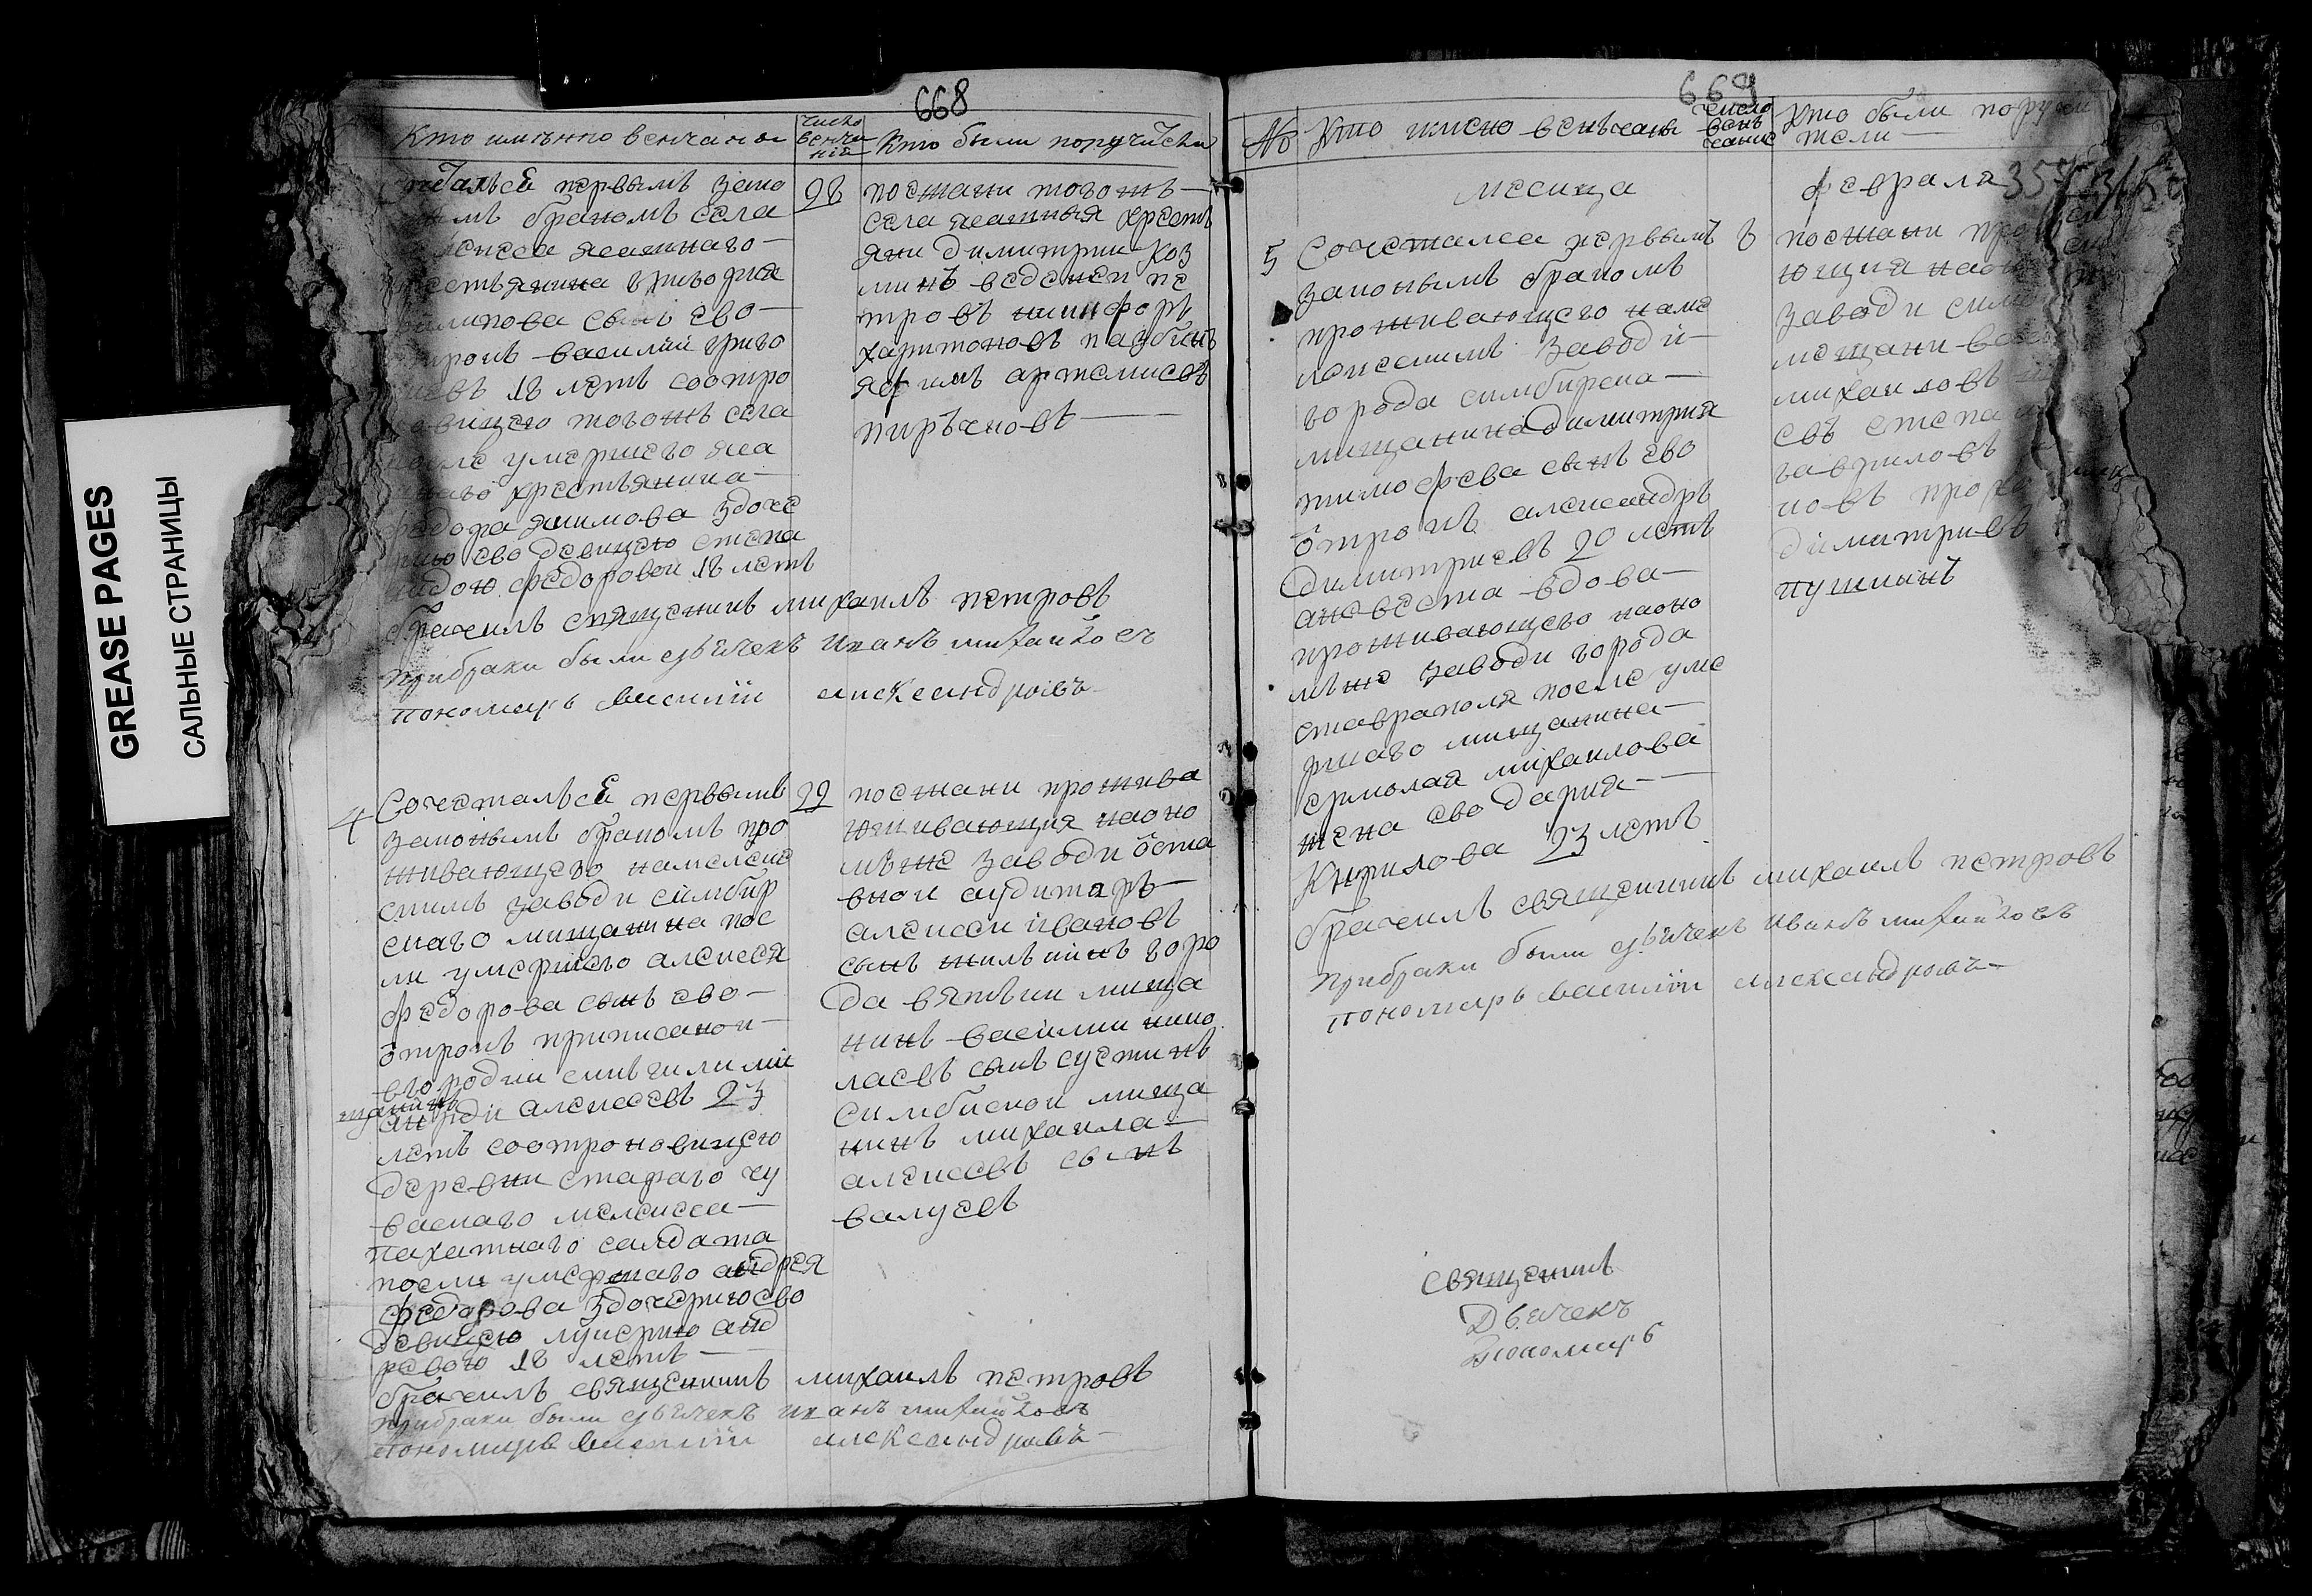 GREASE PAGES
САЛЬНЫЕ СТРАНИЦЫ
668
Кто имѣнно венчаны
число венчаній
Кто были поручители
первымъ зако
нымъ бракомъ села
ясашнаго
крестьянина григория
филипова сынъ ево
отрокъ василий григо
18 летъ соотро
ковицею тогожъ села
после умершего яса
шнаго крестьянина
федора якимова здоче
рию ево девицею степа
нидою федоровой 18 летъ
28
поежани тогожъ
села ясашныя крестъ
яни димитрии коз
минъ еведенеи пе
тровъ никифоръ
харитоновъ
яфимъ артемиевъ
пирѣчновъ
брачилъ священикъ михаилъ петровъ
прибраки были дьячекъ иванъ михайловъ
пономарь василiй александровъ
4
Сочетался первымъ
законымъ бракомъ про
живающего намелеке
скимъ заводи симбир
скаго мищанина пос
ли умершего алексея
федорова сынъ ево
отрокъ приписанои
вгородки мищанинъ
андри алексеевъ 23
летъ соотроковицею
деревни стараго чу
васкаго мелекеса
пахатнаго салдата
посли умершаго андрея
федорова здочерию ево
девицею лукерию анд
ревою 18 летъ
29
поежани прожива
ющивающия наоно
мѣже заводи оста
вной аудиторъ
алексеи ивановъ
сынъ жилькинъ горо
да вятьки мища
нинъ василии нико
лаевъ сынъ сустинъ
симбискои мища
нинъ михаила
алексеевъ сынъ
валуевъ
брачилъ священикъ михаилъ петровъ
прибраки были дьячекъ иванъ михайловъ
пономарь василiй александровъ
669
№
Кто имено венъчаны
число венъчание
Кто были поручители
месица
февраля
5
Сочетался первымъ
законымъ бракомъ
проживающего наме
лекескимъ заводи
города симбирска
мищанина димитрия
тимофеева сынъ ево
отрокъ александръ
димитриевъ 20 летъ
аневеста вдова
проживающего наоно
мъже заводи города
ставраполя после уме
ршаго мищанина
ермолая михаилова
жена ево дария
Кирилова 23 летъ
поежани
ющия
заводи
мещани
михаиловъ
евъ степа
гавриловъ
новъ
димитриевъ
пушкинъ
брачилъ священикъ михаилъ петровъ
прибраки были дьячекъ иванъ михайловъ
пономарь василiй александровъ
священикъ
Дьячекъ
Пономарь